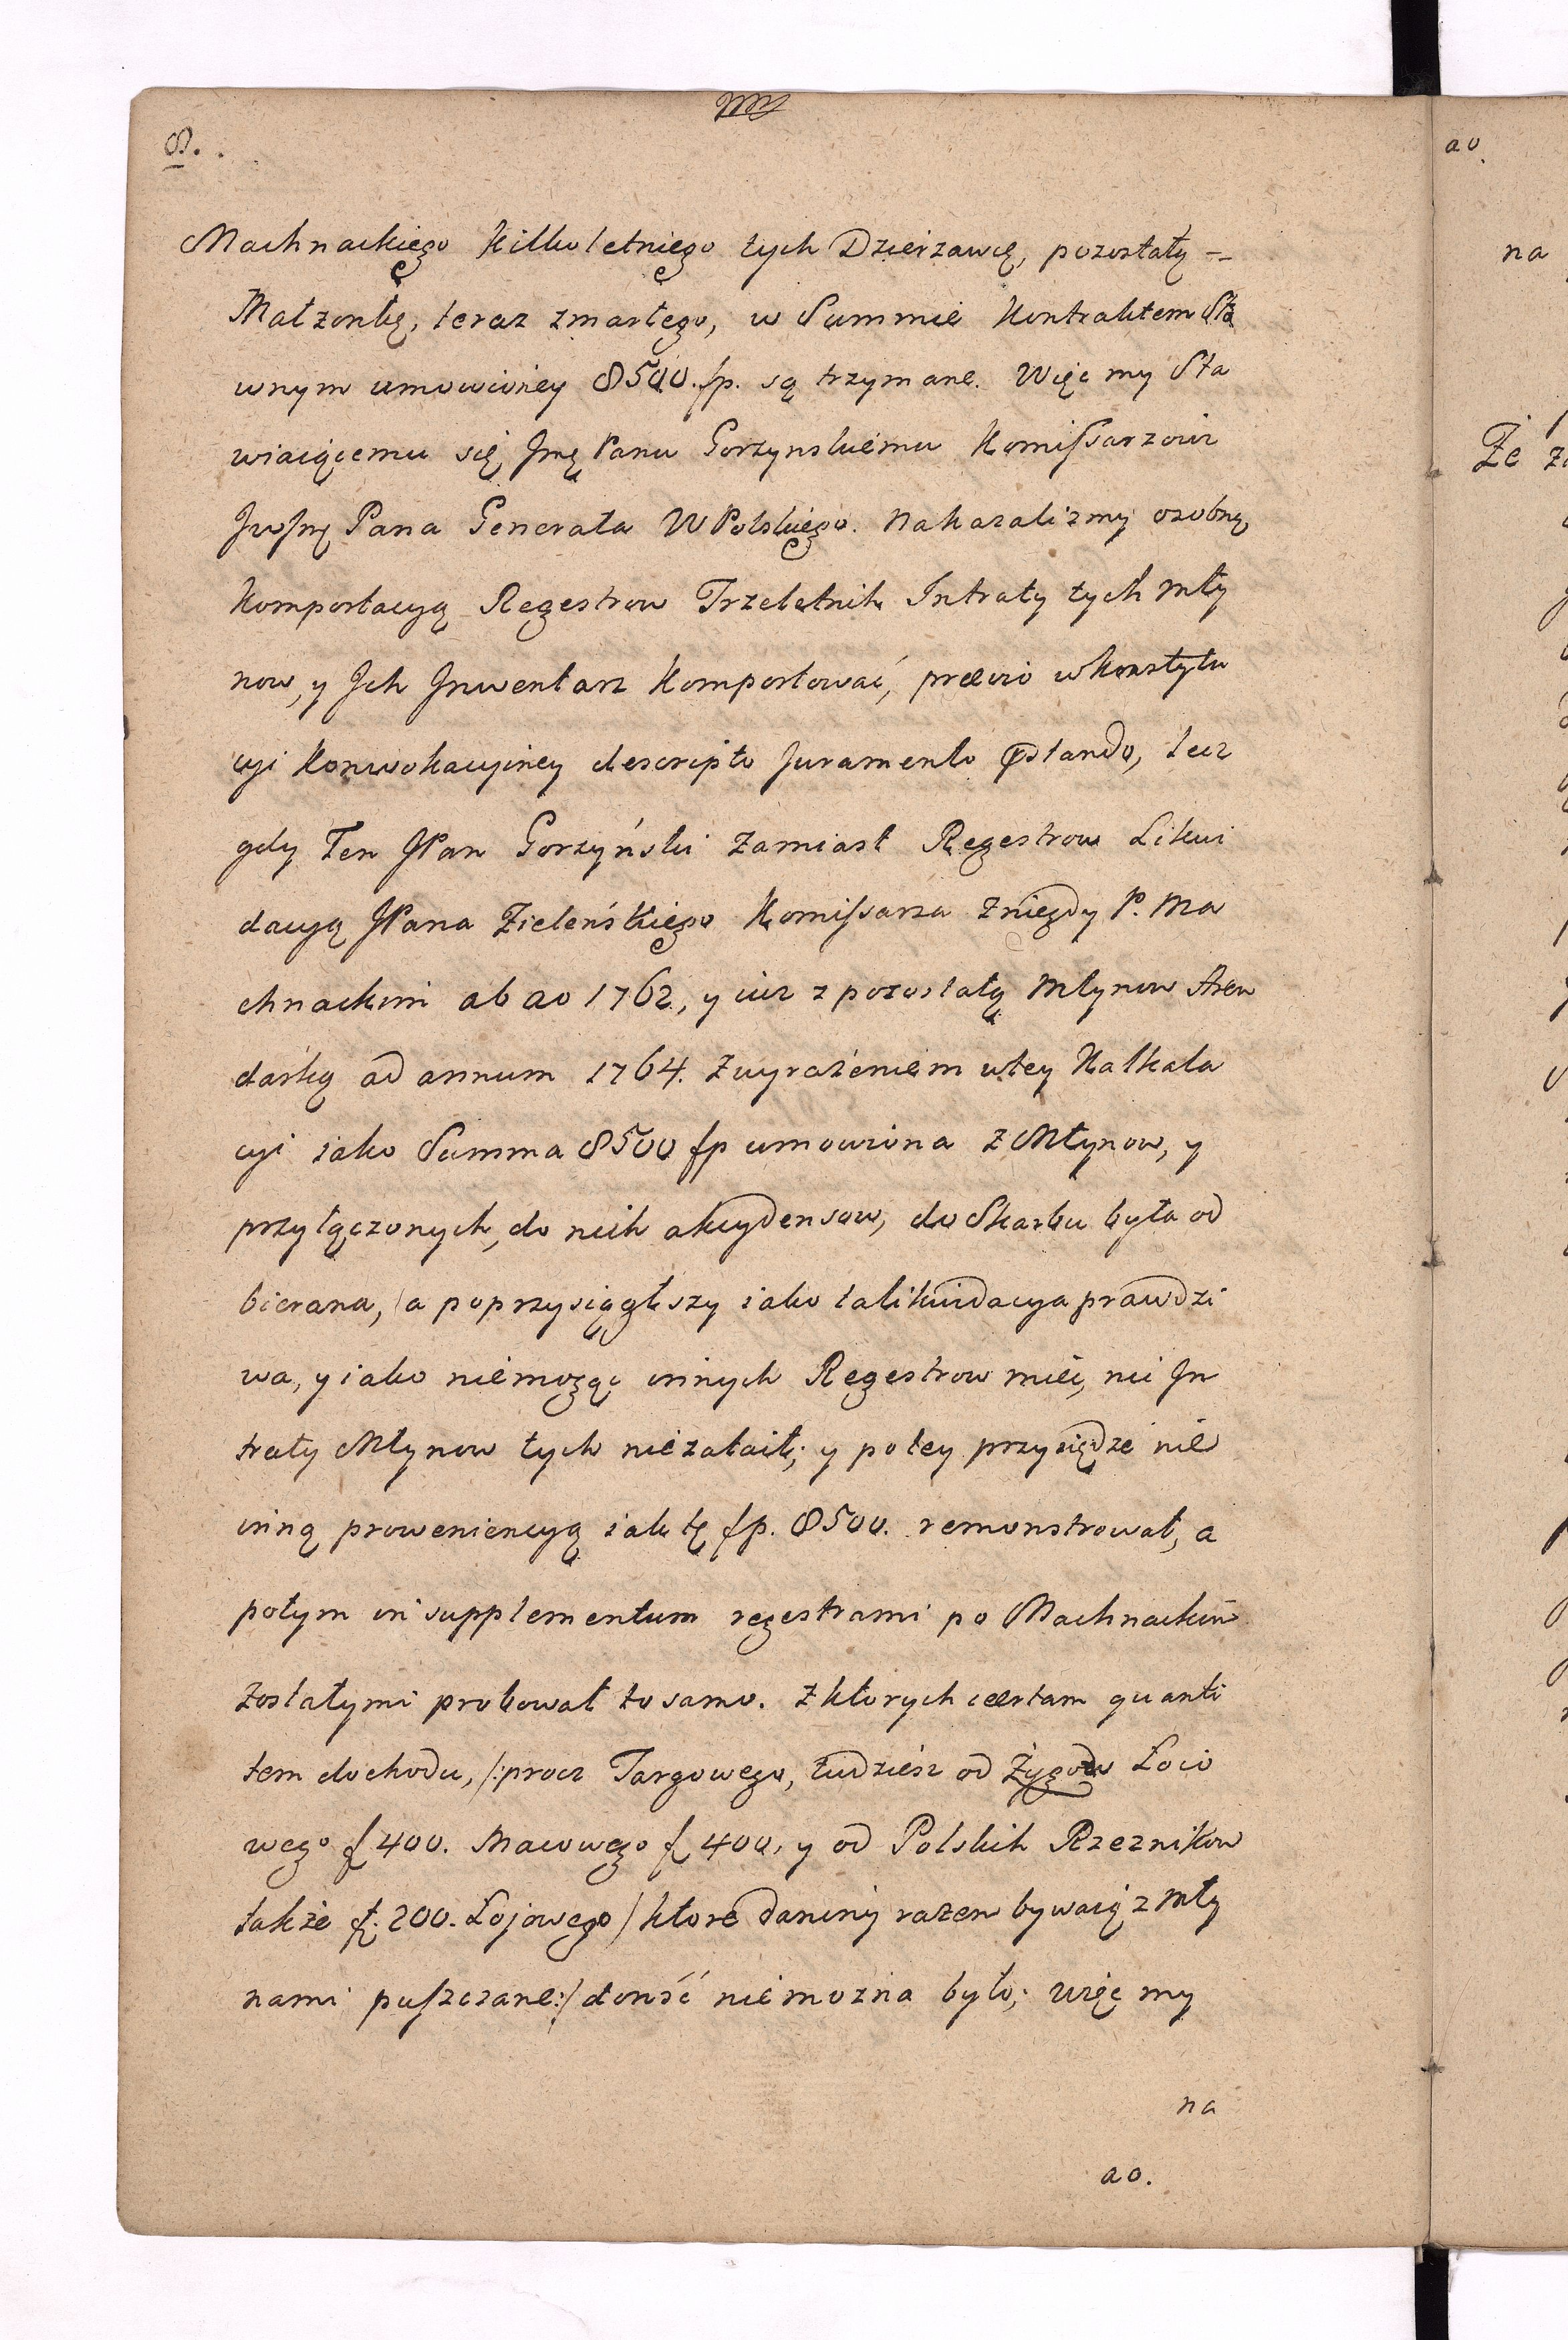 8.
Machnackiego Kilkoletniego tych Dzierzawcę, pozostałą =
Małzonkę, teraz zmarłego, w Summie Kontraktem Sła
wnym umowioney 8500. fp. są trzymane. Więc my Sta
wiaiącemu się Jmę Panu Gorzynskiemu Komissarzowi
JwJmę Pana Generała WPolskiego. Nakazalismy osobną
Komportacyą Regestrow Trzeletnich Intraty tych Mły
now, y Jch Jnwentarz Komportować, prewio w konstytu
cyi Konwokacyiney descripto Juramento pstando, lecz
gdy Ten JPan Gorzyński Zamiast Regestrow Likwi
dacyą JPana Zieleńskiego Komissarza Zniegdy P. Ma
chnackim ab ao 1762, y iuz z pozostałą Młynow Aren
darką ad annum 1764. Zwyrażeniem wtey Kalkula
cyi iako Summa 8500 fp umowiona z Młynow, y
przyłączonych, do nich akcydensow, do Skarbu była od
bierana, a poprzysiągłszy iako ta likwidacya prawdzi
wa, y iako niemogąc innych Regestrow mieć, nic Jn
traty Młynow tych niezataił; y po tey przysiędze nie
inną prowenięncyą iak tę fp. 8500. remonstrował, a
potym in supplementum regestrami po Machnackim
Zostałymi probował to samo. Z ktorych certam quanti
tem dochodu, /: procz Targowego, tudziesz od Żydow Łoio
wego f 400. Macowego f 400, y od Polskich Rzeznikow
także f. 200. Łojowego / ktore daniny razem bywaią z Mły
nami puszczane :/ donść niemozna było; więc my
na
ao.
ao.
na
Że